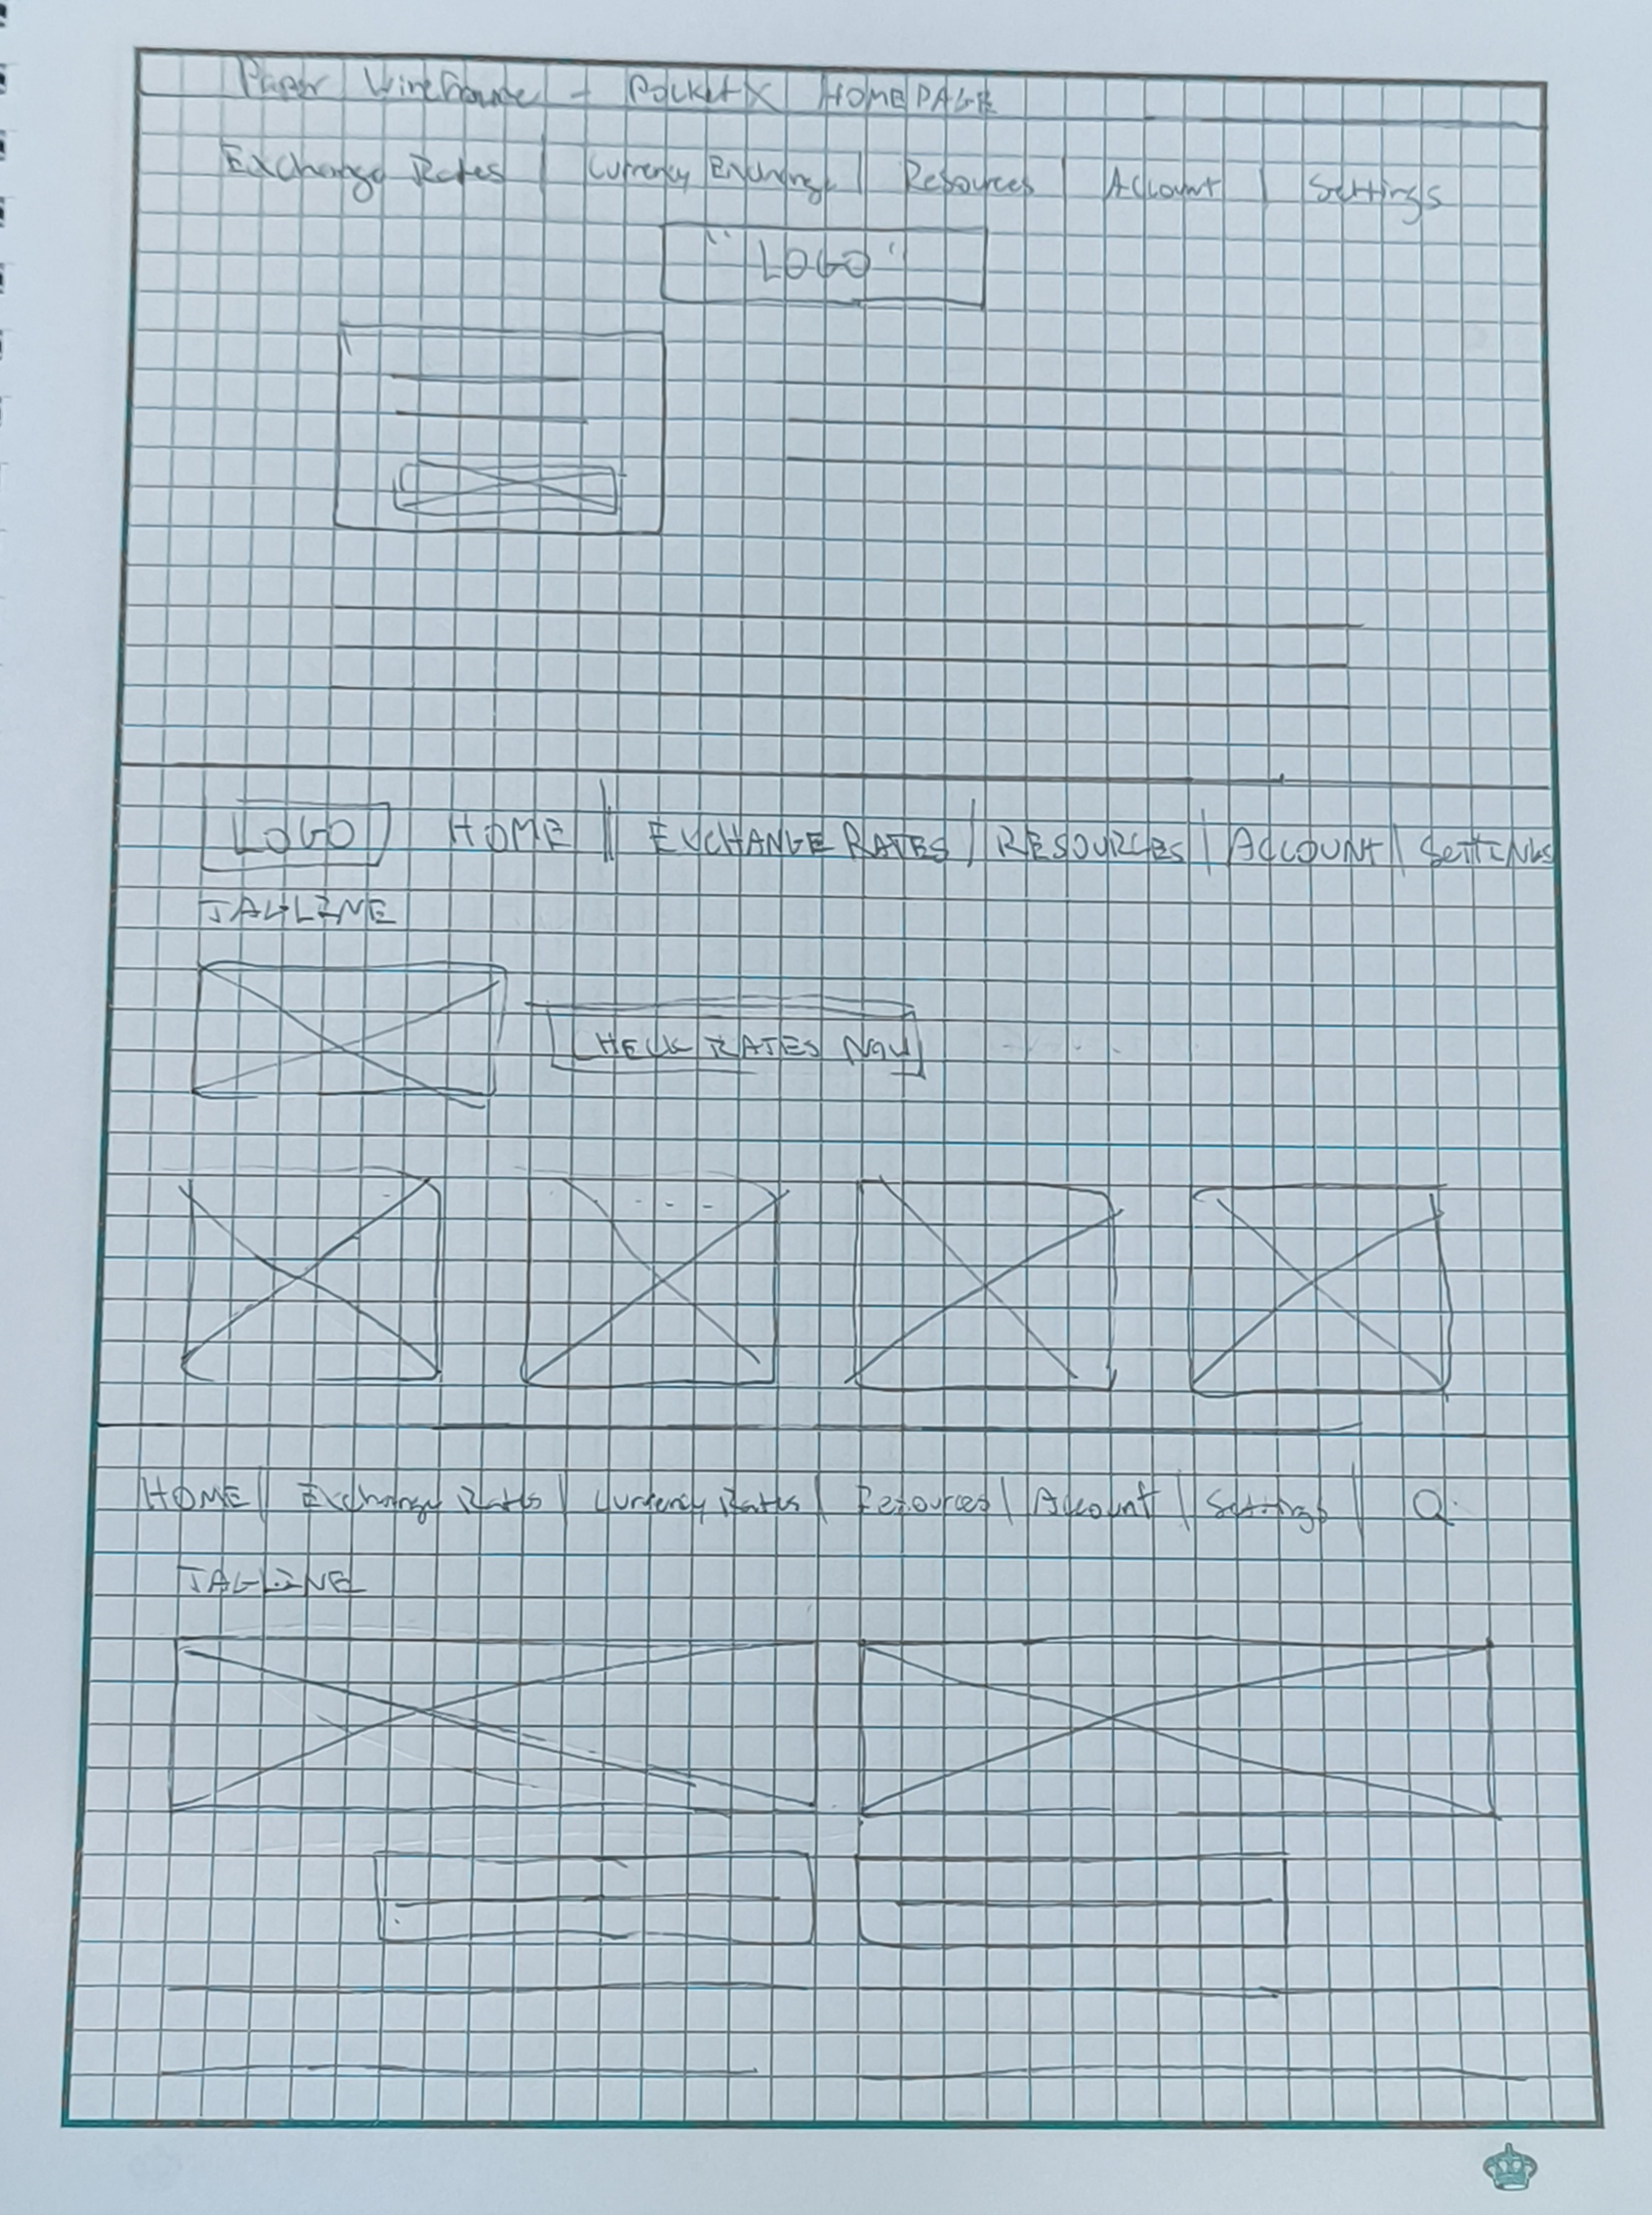 Paper Wireframe - PocketX HOMEPAGE
Exchange Rates | Currency Exchange | Resources | Account | Settings
"LOGO"
LOGO HOME | EXCHANGE RATES | RESOURCES | ACCOUNT | SETTINGS
TAGLINE
CHECK RATES NOW
HOME | Exchange Rates | Currency Rates | Resources | Account | Settings | Q
TAGLINE